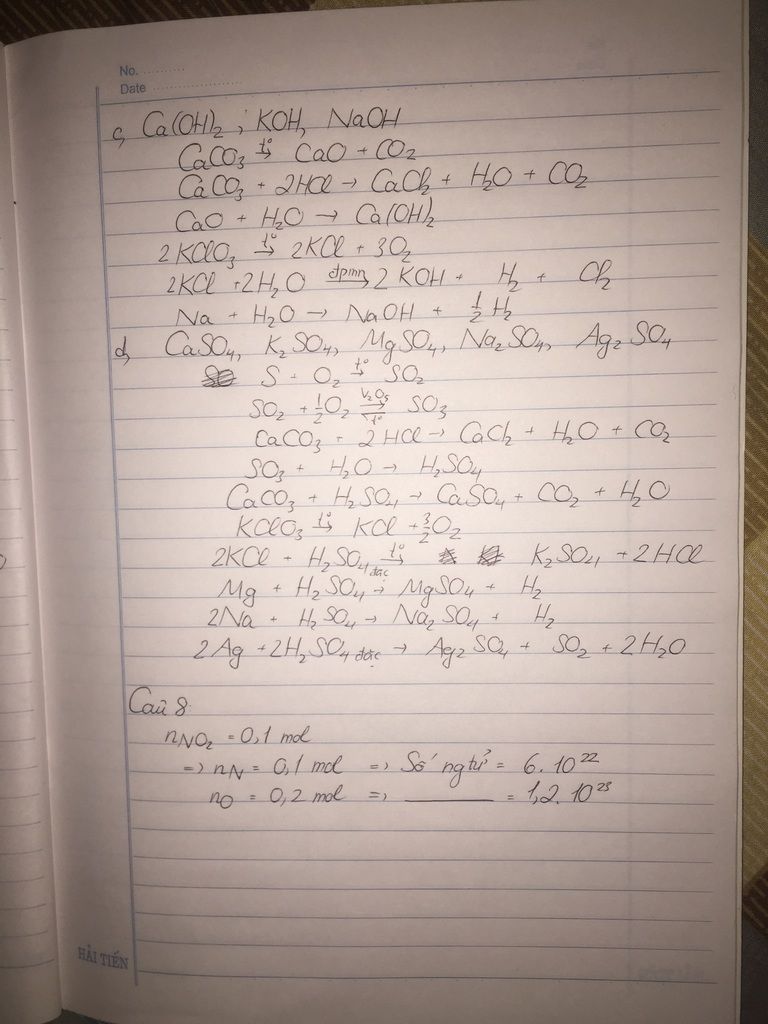 No. ............
Date .....................
c, Ca(OH)₂ ; KOH, NaOH
CaCO₃ →(t°) CaO + CO₂
CaCO₃ + 2HCl → CaCl₂ + H₂O + CO₂
CaO + H₂O → Ca(OH)₂
2KClO₃ →(t°) 2KCl + 3O₂
2KCl + 2H₂O →(đpmn) 2KOH + H₂ + Cl₂
Na + H₂O → NaOH + ½H₂
d, CaSO₄, K₂SO₄, MgSO₄, Na₂SO₄, Ag₂SO₄
S + O₂ →(t°) SO₂
SO₂ + ½O₂ ⇌(V₂O₅, t°) SO₃
CaCO₃ + 2HCl → CaCl₂ + H₂O + CO₂
SO₃ + H₂O → H₂SO₄
CaCO₃ + H₂SO₄ → CaSO₄ + CO₂ + H₂O
KClO₃ →(t°) KCl + 3/2O₂
2KCl + H₂SO₄ đặc →(t°) K₂SO₄ + 2HCl
Mg + H₂SO₄ → MgSO₄ + H₂
2Na + H₂SO₄ → Na₂SO₄ + H₂
2Ag + 2H₂SO₄ đặc → Ag₂SO₄ + SO₂ + 2H₂O
Câu 8:
nNO₂ = 0,1 mol
=> nN = 0,1 mol => Số ngtử = 6.10²²
nO = 0,2 mol => ______ = 1,2.10²³
HẢI TIẾN